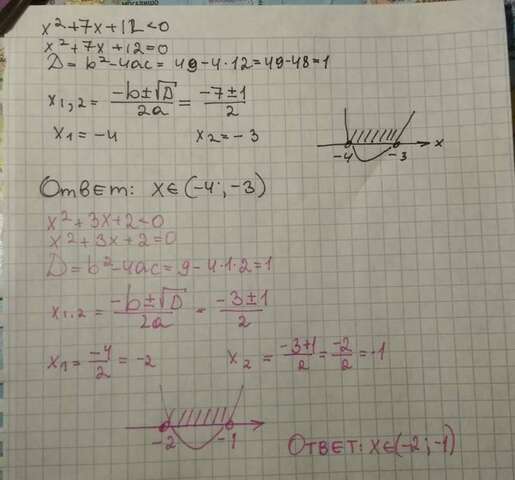 x²+7x+12<0
x²+7x+12=0
D=b²-4ac=49-4·12=49-48=1
x₁,₂=(-b±√D)/2a=(-7±1)/2
x₁=-4 x₂=-3
-4 -3 x
Ответ: x∈(-4;-3)
x²+3x+2<0
x²+3x+2=0
D=b²-4ac=9-4·1·2=1
x₁,₂=(-b±√D)/2a=(-3±1)/2
x₁=-4/2=-2 x₂=(-3+1)/2=-2/2=-1
-2 -1
Ответ: x∈(-2;-1)